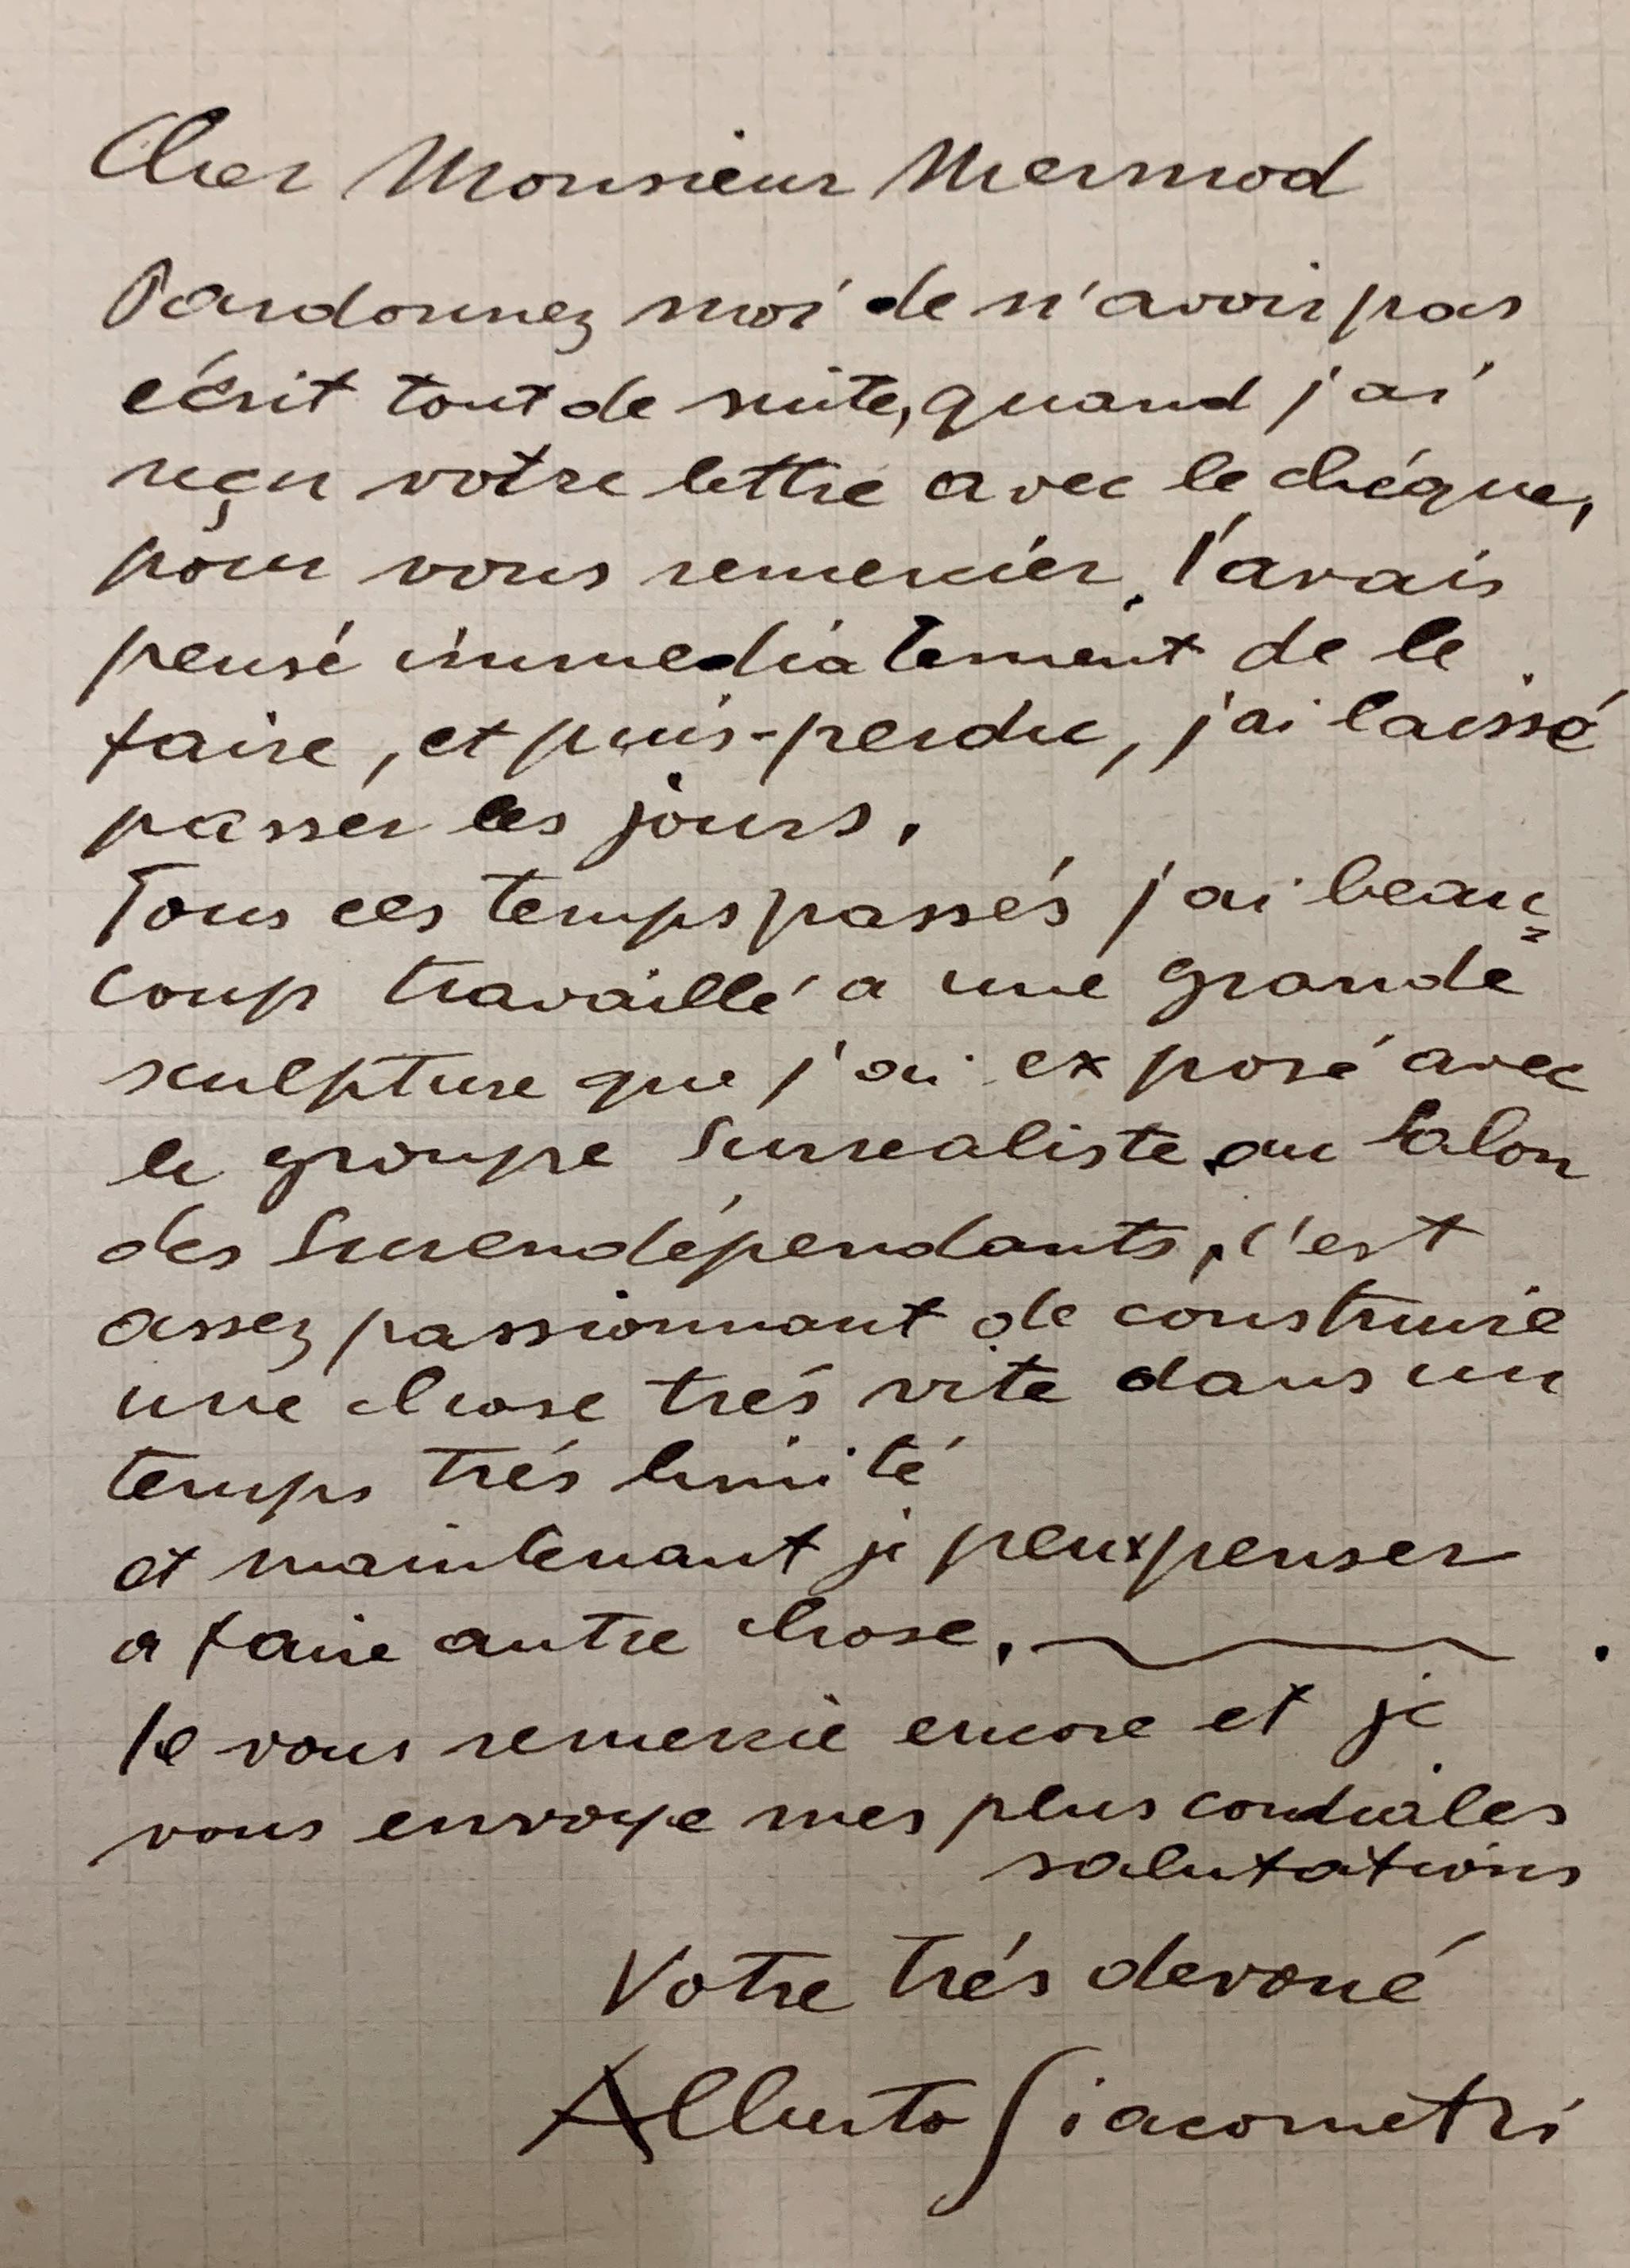 Cher Monsieur Mermod
Pardonnez moi de n'avoir pas
écrit tout de suite, quand j'ai
reçu votre lettre avec le chéque,
pour vous remercier. J'avais
pensé immediatement de le
faire, et puis-perdu, j'ai laissé
passer les jours.
Tous ces temps passés j'ai beau=
coup travaillé a une grande
sculpture que j'ai exposé avec
le groupe Surrealiste au Salon
des Surendépendants, c'est
assez passionnant de construire
une chose trés vite dans un
temps trés limité
et maintenant je peux penser
a faire autre chose.
Je vous remercie encore et je
vous envoye mes plus cordiales
salutations
Votre trés devoué
Alberto Giacometti